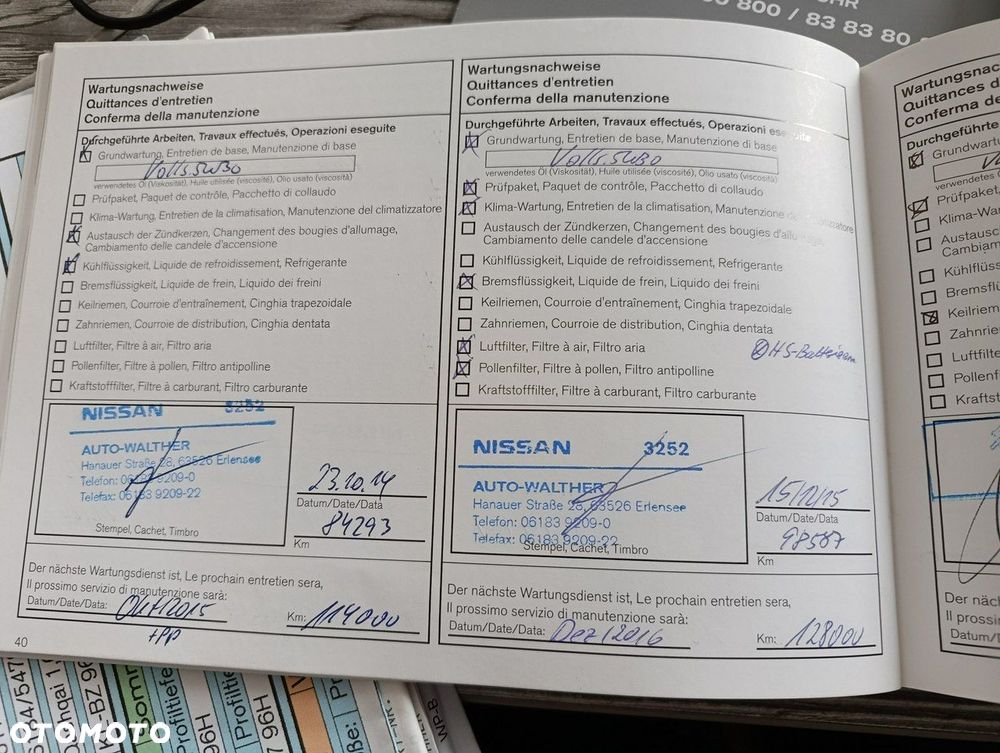 OHR
00 800 / 83 83 80
Wartungsnachweise
Quittances d'entretien
Conferma della manutenzione
Durchgeführte Arbeiten, Travaux effectués, Operazioni eseguite
Grundwartung, Entretien de base, Manutenzione di base
Volls. 5W30
verwendetes Öl (Viskosität), Huile utilisée (viscosité), Olio usato (viscosità)
Prüfpaket, Paquet de contrôle, Pacchetto di collaudo
Klima-Wartung, Entretien de la climatisation, Manutenzione del climatizzatore
Austausch der Zündkerzen, Changement des bougies d'allumage,
Cambiamento delle candele d'accensione
Kühlflüssigkeit, Liquide de refroidissement, Refrigerante
Bremsflüssigkeit, Liquide de frein, Liquido dei freini
Keilriemen, Courroie d'entraînement, Cinghia trapezoidale
Zahnriemen, Courroie de distribution, Cinghia dentata
Luftfilter, Filtre à air, Filtro aria
Pollenfilter, Filtre à pollen, Filtro antipolline
Kraftstofffilter, Filtre à carburant, Filtro carburante
NISSAN 3252
AUTO-WALTHER
Hanauer Straße 28, 63526 Erlensee
Telefon: 06183 9209-0
Telefax: 06183 9209-22
Stempel, Cachet, Timbro
23.10.14
Datum/Date/Data
84293
Km
Der nächste Wartungsdienst ist, Le prochain entretien sera,
Il prossimo servizio di manutenzione sarà:
Datum/Date/Data: Okt/2015 Km: 114000
+PP
40
Wartungsnachweise
Quittances d'entretien
Conferma della manutenzione
Durchgeführte Arbeiten, Travaux effectués, Operazioni eseguite
Grundwartung, Entretien de base, Manutenzione di base
Volls. 5W30
verwendetes Öl (Viskosität), Huile utilisée (viscosité), Olio usato (viscosità)
Prüfpaket, Paquet de contrôle, Pacchetto di collaudo
Klima-Wartung, Entretien de la climatisation, Manutenzione del climatizzatore
Austausch der Zündkerzen, Changement des bougies d'allumage,
Cambiamento delle candele d'accensione
Kühlflüssigkeit, Liquide de refroidissement, Refrigerante
Bremsflüssigkeit, Liquide de frein, Liquido dei freini
Keilriemen, Courroie d'entraînement, Cinghia trapezoidale
Zahnriemen, Courroie de distribution, Cinghia dentata
Luftfilter, Filtre à air, Filtro aria
HS-Batterien
Pollenfilter, Filtre à pollen, Filtro antipolline
Kraftstofffilter, Filtre à carburant, Filtro carburante
NISSAN 3252
AUTO-WALTHER
Hanauer Straße 28, 63526 Erlensee
Telefon: 06183 9209-0
Telefax: 06183 9209-22
Stempel, Cachet, Timbro
15/12/15
Datum/Date/Data
98587
Km
Der nächste Wartungsdienst ist, Le prochain entretien sera,
Il prossimo servizio di manutenzione sarà:
Datum/Date/Data: Dez/2016 Km: 128000
Wartungsnac
Quittances d
Conferma de
Durchgeführte
Grundwart
verwendetes
Prüfpaket,
Klima-Wa
Austausc
Cambiam
Kühlflüss
Bremsflü
Keilriem
Zahnrie
Luftfilte
Pollenf
Kraftst
Der näch
Il prossim
Datum/D
Profiltiefe
OTOMOTO